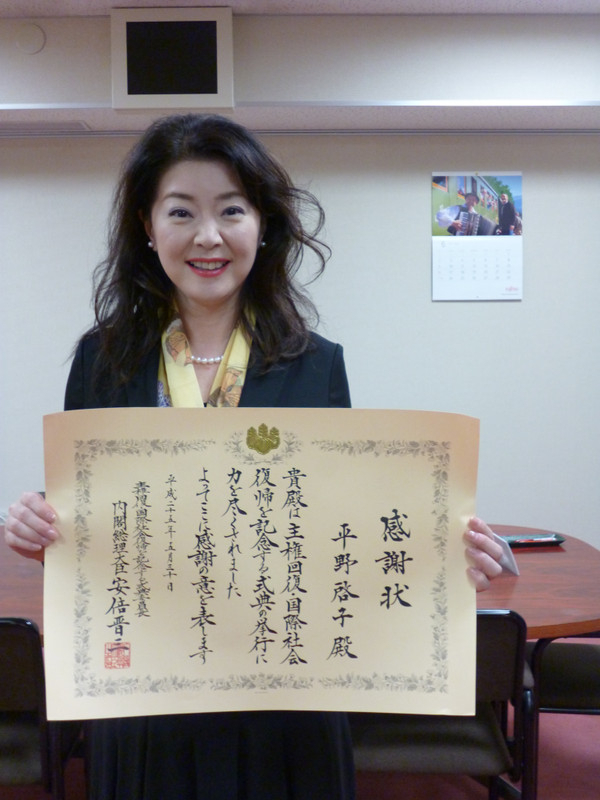 感謝状
平野啓子殿
貴殿は主権回復・国際社会
復帰を記念する式典の挙行に
力を尽くされました
よってここに感謝の意を表します
平成二十五年五月三十日
主権回復・国際社会復帰を記念する式典委員長
内閣総理大臣 安倍晋三